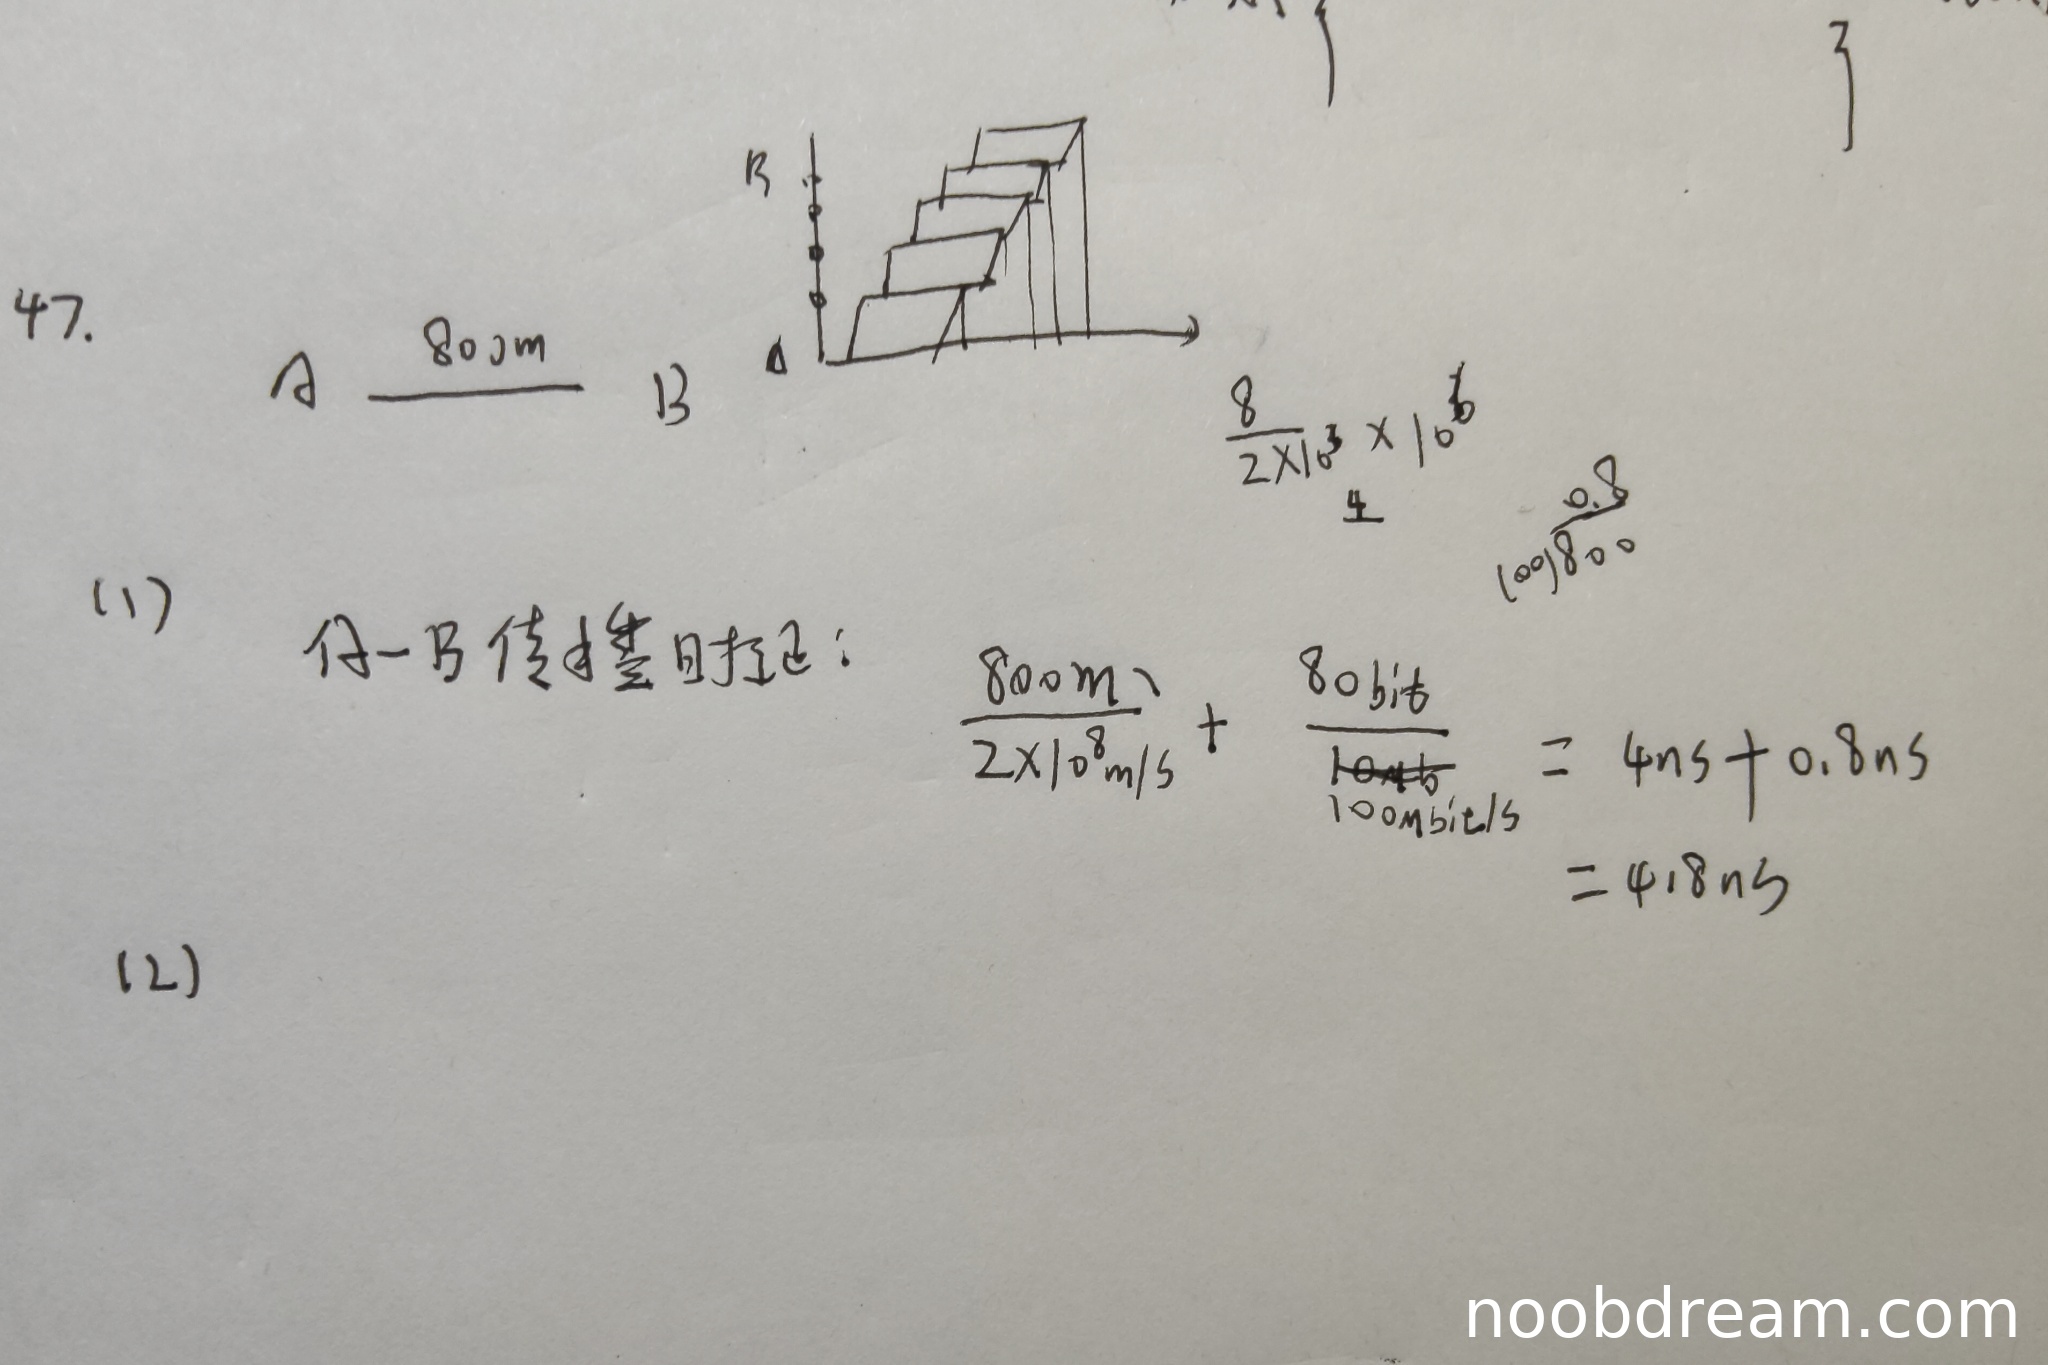 47.
A 800m B
B
A
8 / 2×10³ × 10⁶
4
0.8
100)800
(1) A-B传播时延: 800m / 2×10⁸m/s + 80bit / 100Mbit/s = 4ns+0.8ns
=4.8ns
(2)
noobdream.com